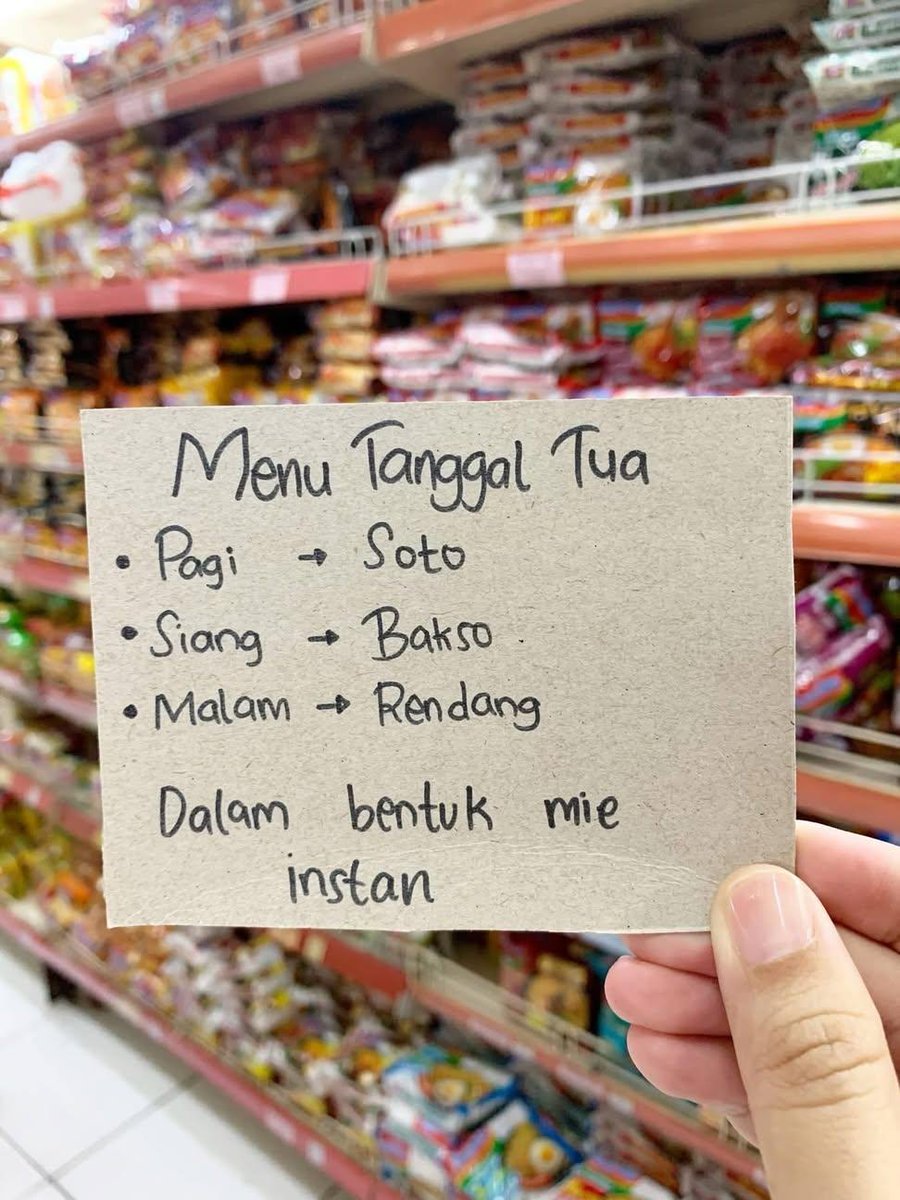 Menu Tanggal Tua
• Pagi → Soto
• Siang → Bakso
• Malam → Rendang
Dalam bentuk mie
instan